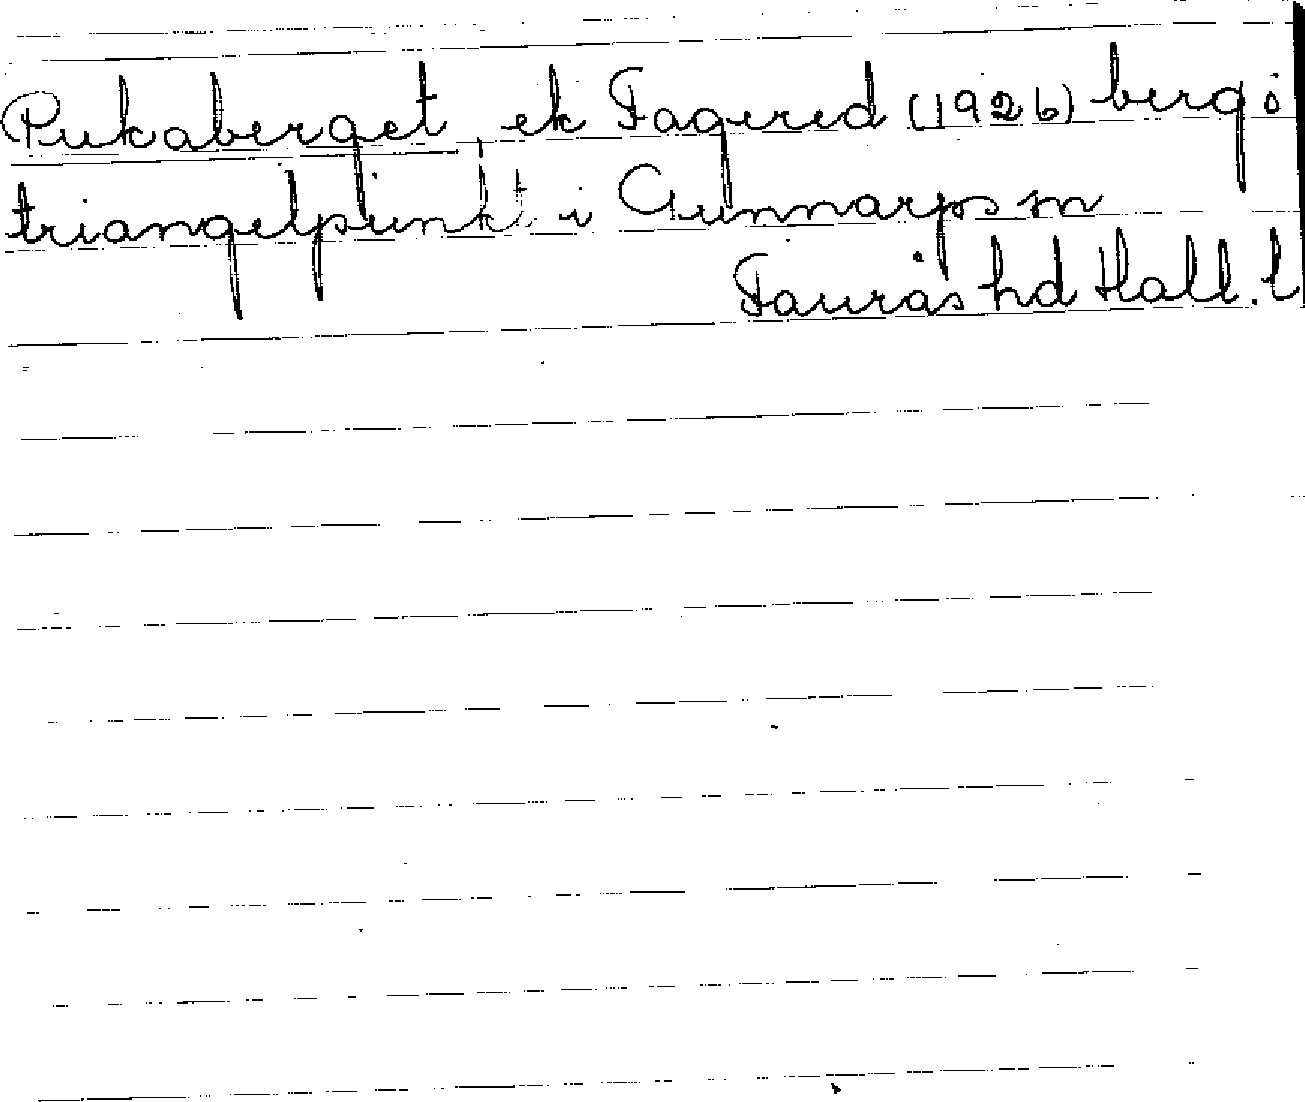 Pukaberget, ek Fagered (1926) berg ö
triangelpunkt i Gunnarps sn
Faurås hd Hall. l